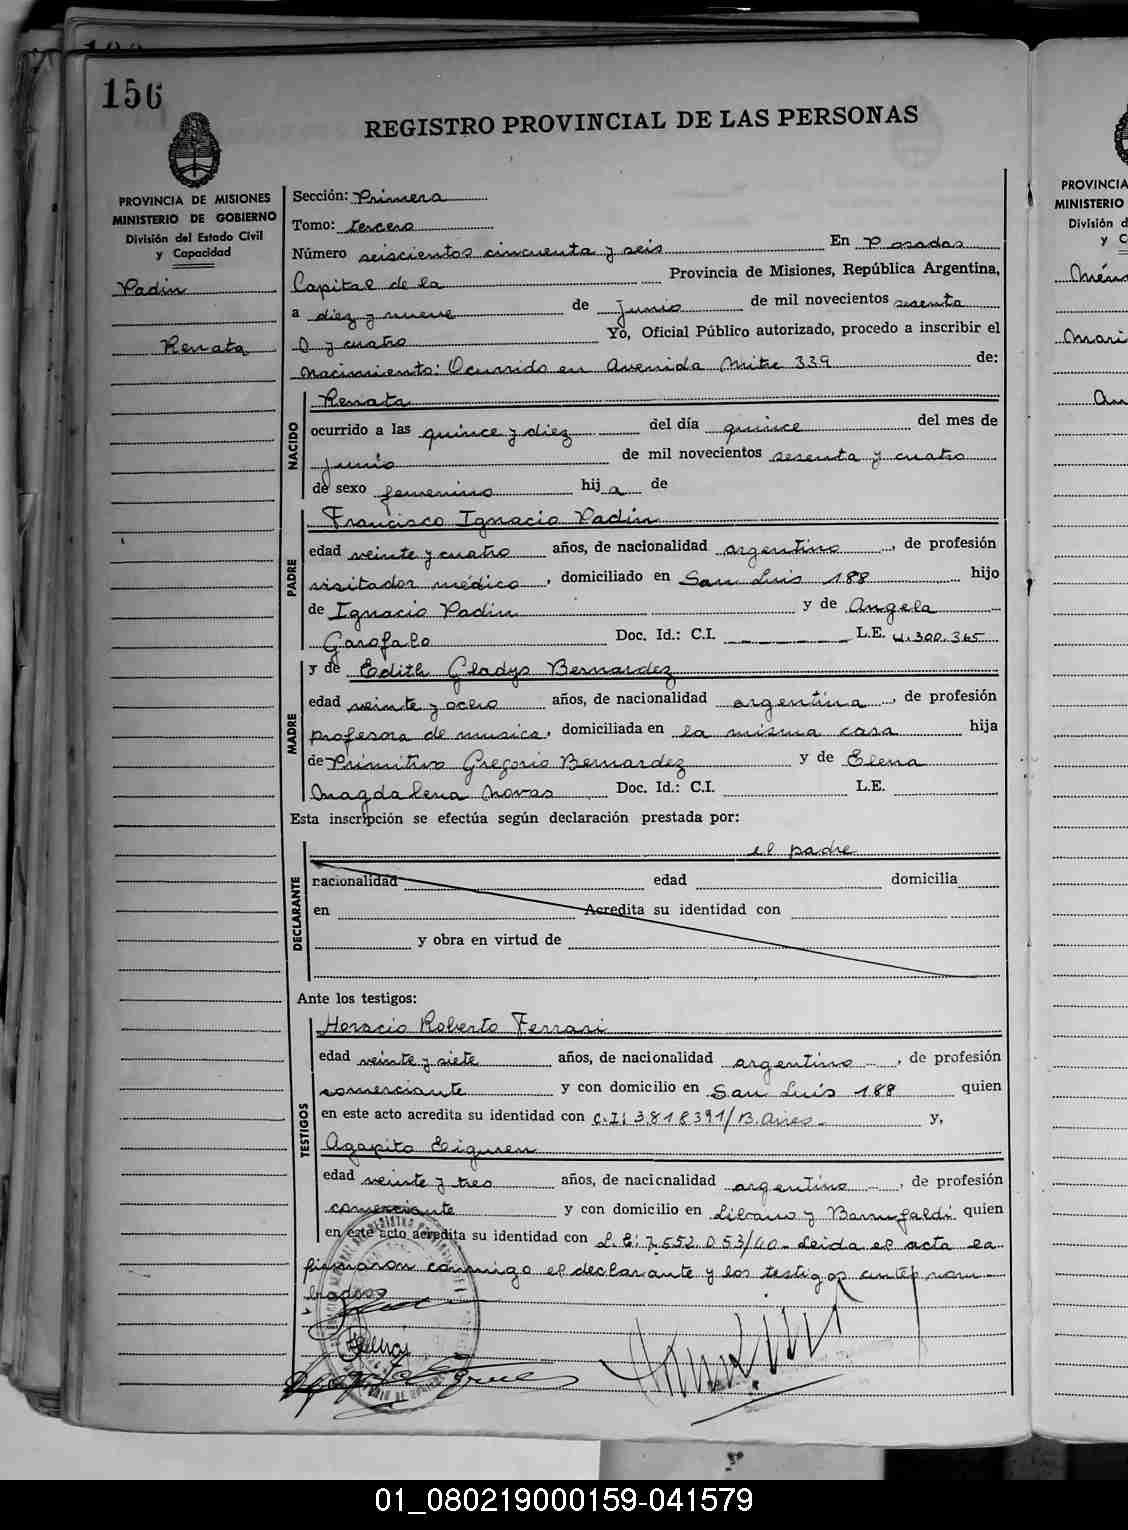 156
REGISTRO PROVINCIAL DE LAS PERSONAS
PROVINCIA DE MISIONES
MINISTERIO DE GOBIERNO
División del Estado Civil
y Capacidad
Padin
Renata
Sección: Primera
Tomo: tercero
Número seiscientos cincuenta y seis En Posadas
Capital de la Provincia de Misiones, República Argentina,
a diez y nueve de Junio de mil novecientos sesenta
y cuatro Yo, Oficial Público autorizado, procedo a inscribir el
nacimiento: Ocurrido en Avenida Mitre 339 de:
NACIDO
Renata
ocurrido a las quince y diez del día quince del mes de
junio de mil novecientos sesenta y cuatro
de sexo femenino hija de
PADRE
Francisco Ignacio Padin
edad veinte y cuatro años, de nacionalidad argentino, de profesión
visitador médico, domiciliado en San Luis 188 hijo
de Ignacio Padin y de Angela
Garofalo Doc. Id.: C.I. L.E. 4.300.365
MADRE
y de Edith Gladys Bernardez
edad veinte y ocho años, de nacionalidad argentina, de profesión
profesora de musica, domiciliada en la misma casa hija
de Primitivo Gregorio Bernardez y de Elena
Magdalena Novas Doc. Id.: C.I. L.E.
Esta inscripción se efectúa según declaración prestada por:
el padre
DECLARANTE
nacionalidad edad domicilia
en Acredita su identidad con
y obra en virtud de
Ante los testigos:
TESTIGOS
Horacio Roberto Ferrari
edad veinte y siete años, de nacionalidad argentino, de profesión
comerciante y con domicilio en San Luis 188 quien
en este acto acredita su identidad con C.I: 3.818391/B.Aires- y,
Agapito Eiguren
edad veinte y tres años, de nacionalidad argentino, de profesión
comerciante y con domicilio en Líbano y Barrufaldi quien
en este acto acredita su identidad con L.E: 7.552.053/40- Leida el acta la
firmaron conmigo el declarante y los testigos antep nom-
brados
PROVINCIA
MINISTERIO
División d
y C
01_080219000159-041579